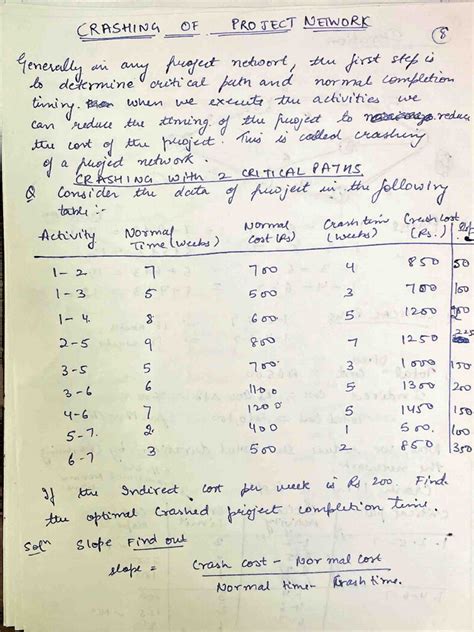 CRASHING OF PROJECT NETWORK
8
Generally in any project networt, the first step is
to determine critical path and normal completion
timing. when we execute the activities we
can reduce the timing of the project to reduce
the cost of the project. This is called crashing
of a project network.
CRASHING WITH 2 CRITICAL PATHS
Q Consider the data of project in the following
table :-
Activity Normal Time (weeks) Normal Cost (Rs) Crash tem (weeks) Crash Cost (Rs.)
1-2 7 700 4 850 50
1-3 5 500 3 700 100
1-4 8 600 5 1200
2-5 9 800 7 1250 225
3-5 5 700 3 1000 150
3-6 6 1100 5 1300 200
4-6 7 1200 5 1450
5-7. 2 400 1 500 100
6-7 3 500 2 850 350
If the Indirect Cost per week is Rs 200 Find
the optimal Crashed project completion time.
Soln Slope Find out
slope = Crash cost - Normal cost
Normal time - Crash time.